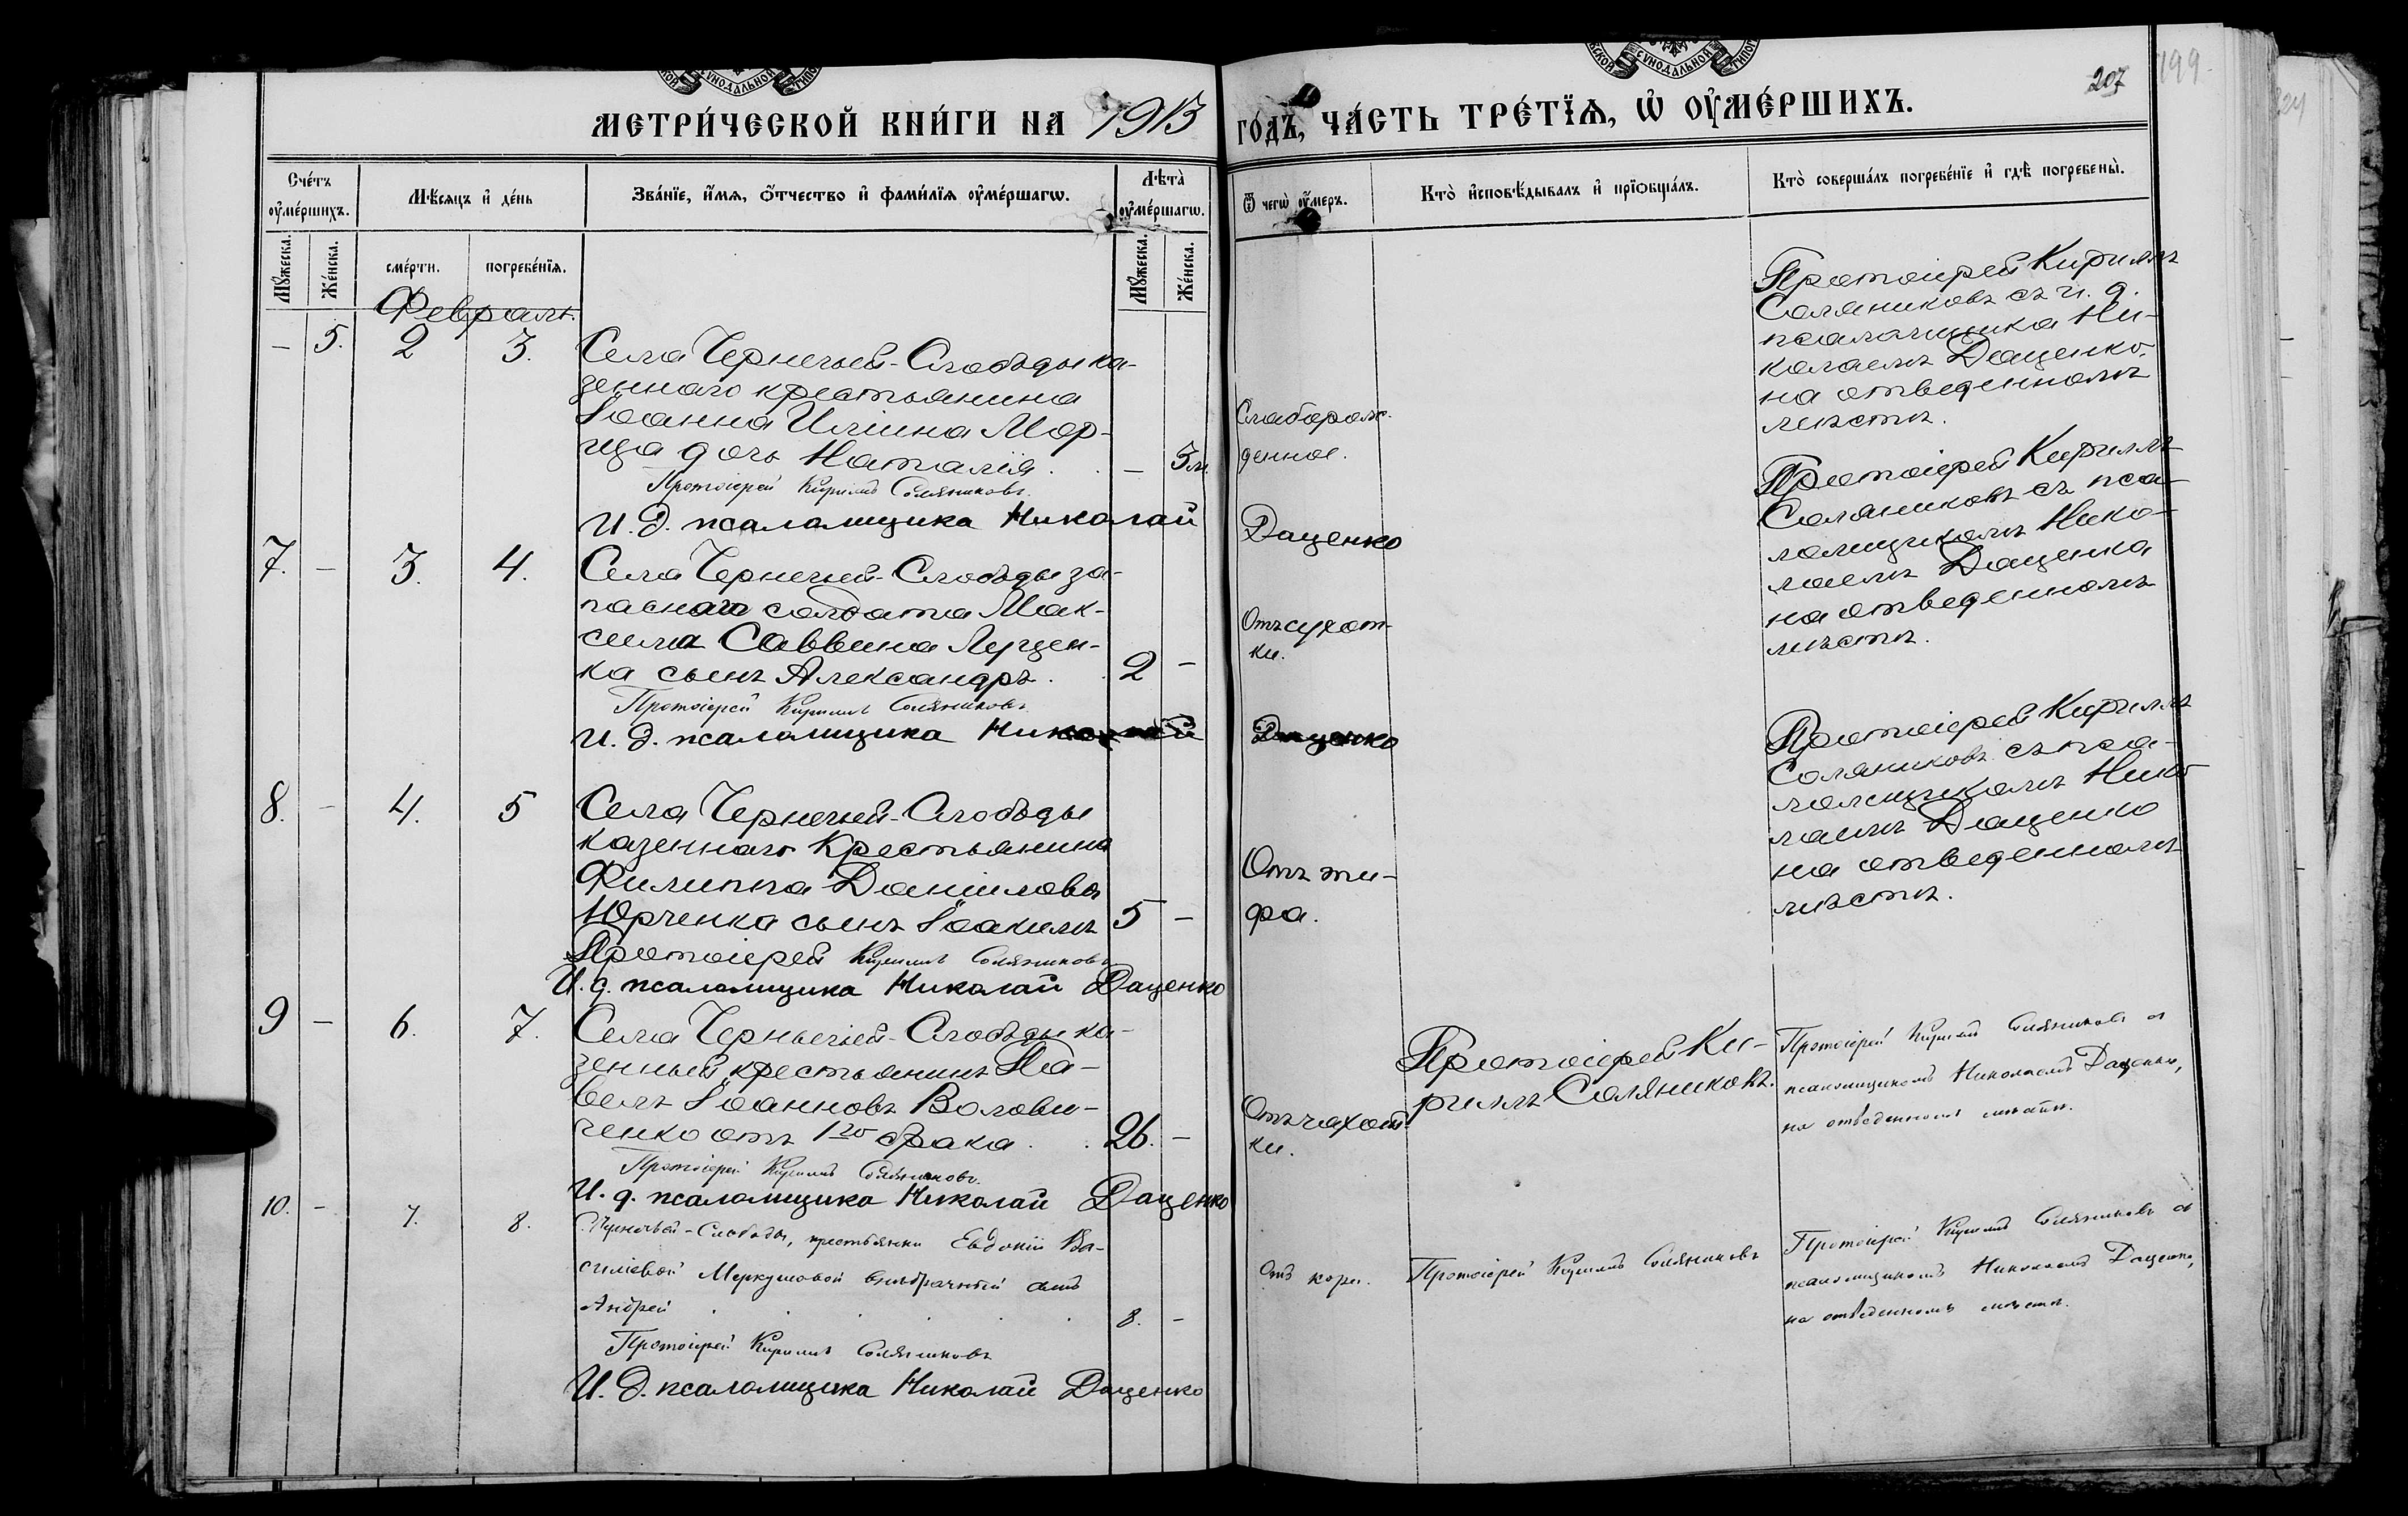 СѴНОДАЛЬНОЙ
СѴНОДАЛЬНОЙ
МЕТРИ́ЧЕСКОЙ КНИ́ГИ НА 1913 ГО́ДЪ, ЧА́СТЬ ТРЕ́ТЇѦ, Ѡ҆ ОУ҆МЕ́РШИХЪ.
207
199
Сче́тъ оу҆ме́ршихъ.
Мѣ́сѧцъ и҆ де́нь
Зва́нїе, и҆́мѧ, ѻ҆́тчество и҆ фами́лїѧ оу҆ме́ршагѡ.
Лѣта̀ оу҆ме́ршагѡ.
Ѿ чегѡ̀ оу҆́меръ.
Кто̀ и҆сповѣ́дывалъ и҆ прїѡбща́лъ.
Кто̀ соверша́лъ погребе́нїе и҆ гдѣ̀ погребены̀.
Мꙋ́жеска.
Же́нска.
сме́рти.
погребе́нїѧ.
Мꙋ́жеска.
Же́нска.
Февраль.
– 5. 2 3.
Села Чернечей-Слободы ка-
зеннаго крестьянина
Іоанна Иліина Мор-
дочь Наталія. – 5 м.
Протоіерей Кириллъ Соляниковъ.
И. д. псаломщика Николай Даценко
Слаборож-
денное.
Протоіерей Кириллъ
Соляниковъ съ и. д.
псаломщика Ни-
колаемъ Даценко,
на отведенномъ
мѣстѣ.
7. – 3. 4.
Села Чернечей-Слободы за-
паснаго солдата Мак-
сима Саввина Луцен-
ка сынъ Александръ. 2 –
Протоіерей Кириллъ Соляниковъ
И. д. псаломщика Николай Даценко
Отъ сухот-
ки.
Протоіерей Кириллъ
Соляниковъ съ пса-
ломщикомъ Нико-
лаемъ Даценка
на отведенномъ
мѣстѣ.
8. – 4. 5
Села Чернечей-Слободы
казеннаго крестьянина
Филиппа Даніилова
Юрченка сынъ Іоакимъ 5 –
Протоіерей Кириллъ Соляниковъ
И. д. псаломщика Николай Даценко
Отъ ти-
фа.
Протоіерей Кириллъ
Соляниковъ съ пса-
ломщикомъ Нико-
лаемъ Даценко
на отведенномъ
мѣстѣ.
9 – 6. 7.
Села Чернечей-Слободы ка-
зенный крестьянинъ Па-
велъ Іоанновъ Волови-
ченко отъ 1го брака. 26. –
Протоіерей Кириллъ Соляниковъ.
И. д. псаломщика Николай Даценко
Отъ чахот-
ки.
Протоіерей Ки-
риллъ Соляниковъ.
Протоіерей Кириллъ Соляниковъ съ
псаломщикомъ Николаемъ Даценко,
на отведенномъ мѣстѣ.
10. – 7. 8.
С. Чернечьей-Слободы, крестьянки Евдокіи Ва-
силіевой Меркушовой внѣбрачный сынъ
Андрей . . . . . 8. –
Протоіерей Кириллъ Соляниковъ
И. д. псаломщика Николай Даценко
Отъ кори.
Протоіерей Кириллъ Соляниковъ
Протоіерей Кириллъ Соляниковъ съ
псаломщикомъ Николаемъ Даценко,
на отведенномъ мѣстѣ.